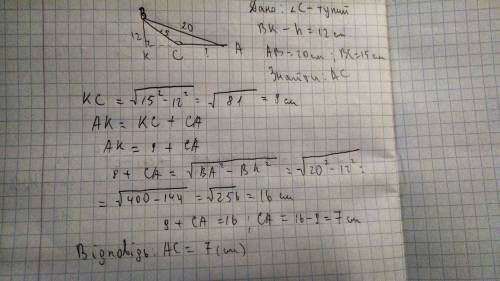 B
20
12
h
15
K
C
?
A
Дано: ∠C - тупий
BK - h = 12 см
AB = 20 см ; BC = 15 см
Знайти: AC
KC = √15² - 12² = √81 = 9 см
AK = KC + CA
AK = 9 + CA
9 + CA = √BA² - BK² = √20² - 12² =
= √400 - 144 = √256 = 16 см
9 + CA = 16 ; CA = 16 - 9 = 7 см
Відповідь: AC = 7 (см)